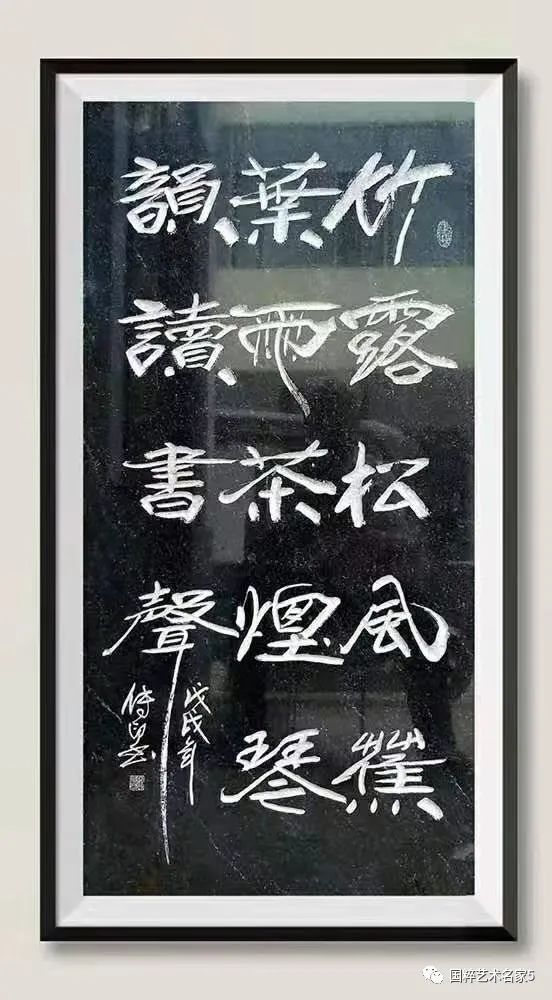 竹露松風蕉
葉雨茶煙琴
韻讀書聲
戊戌年
傳印書
国粹艺术名家5